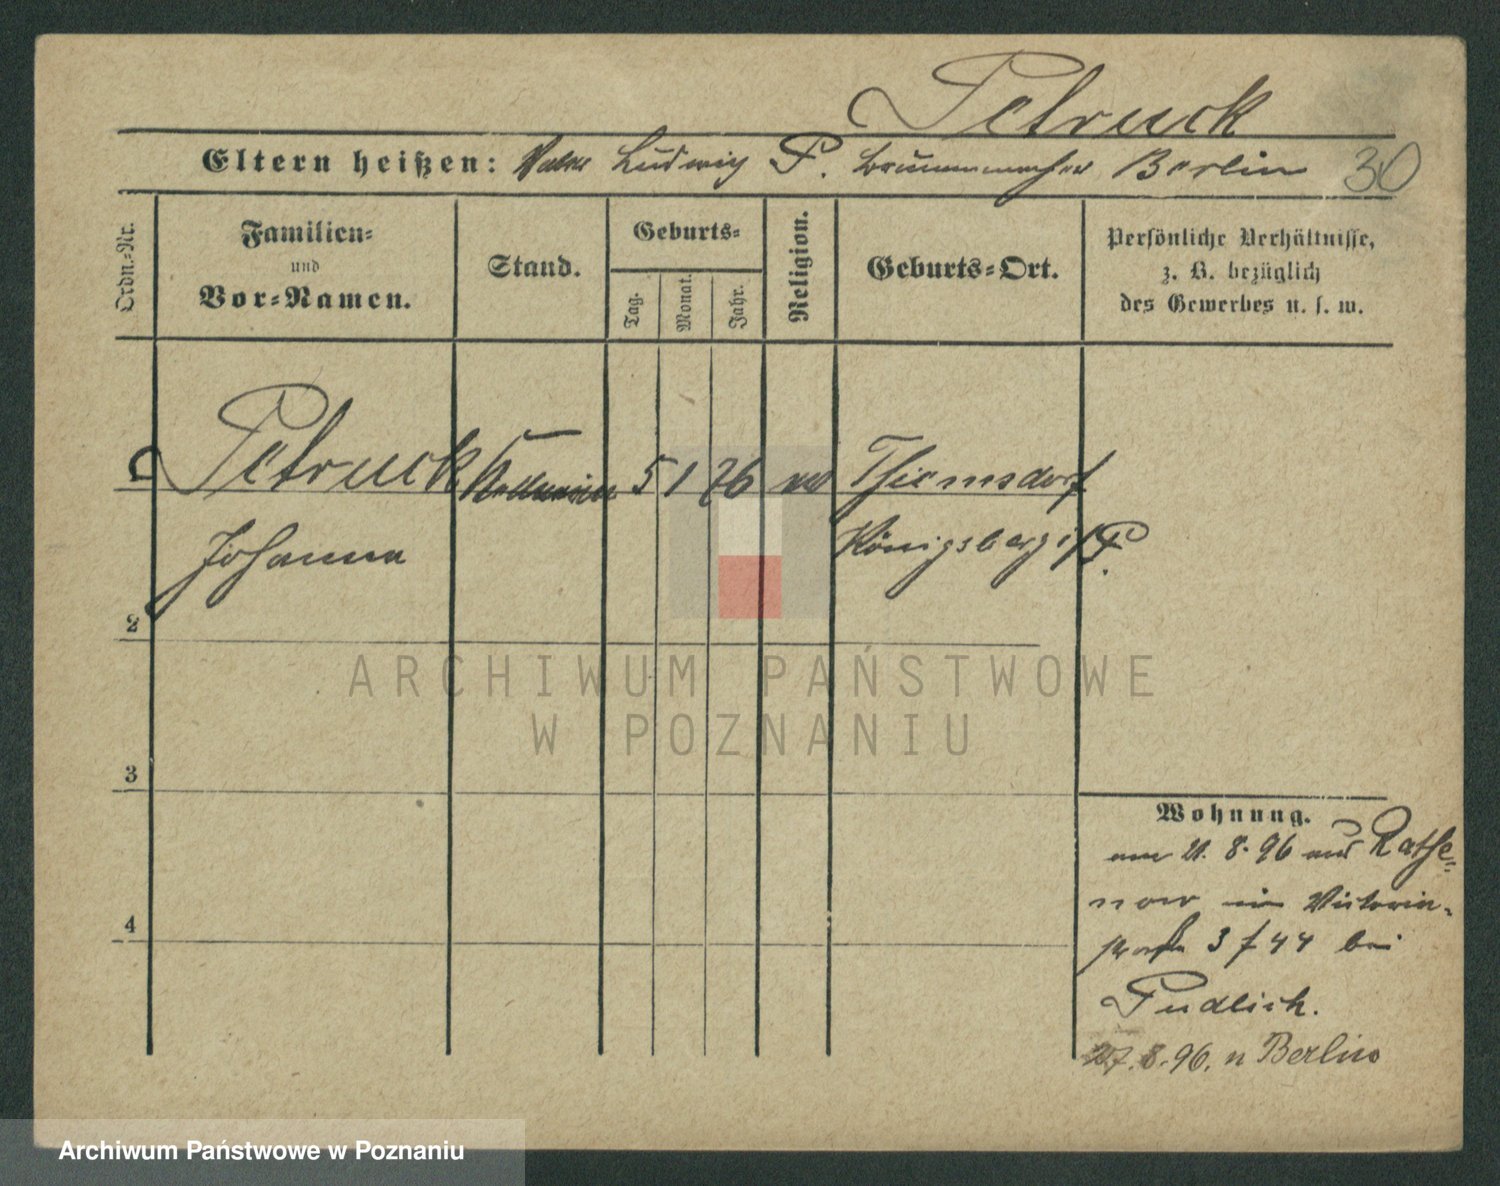 Petruck
Eltern heißen: Vater Ludwig P. Berlin 30
Ordn.-Nr.
Familien-
und
Vor-Namen.
Stand.
Geburts-
Tag.
Monat.
Jahr.
Religion.
Geburts-Ort.
Persönliche Verhältnisse,
z. B. bezüglich
des Gewerbes u. s. w.
Petruck Kellnerin 5 1 76 Thiemsdorf
Johanna Königsberg i/P.
2
3
4
Wohnung.
am 21. 8. 96 aus Rathe=
now in Victoria-
3 f 44 bei
Pudlich.
27. 8. 96. n Berlin
ARCHIWUM PAŃSTWOWE
W POZNANIU
Archiwum Państwowe w Poznaniu